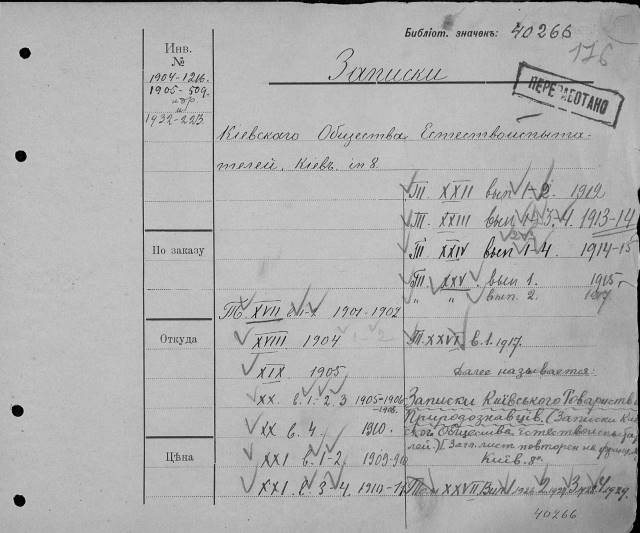 Библіот. значекъ: 40266
176
Инв. №
1904-1216.
1905-509.
1932-223
Записки
ПЕРЕРАБОТАНО
Кіевскаго Общества Естествоиспыта-
телей. Кіевъ. in 8.
Т. XXII вып 1-2. 1912
Т. XXIII вып 1-3. 4. 1913-14
Т. XXIV вып 1-4. 1914-15
По заказу
Т. XXV. вып 1. 1915-
" " вып. 2. 1917
Т. XVII в. 1-2. 1901-1902
Откуда
XVIII 1904 1-2
Т. XXVI в. 1. 1917.
XIX 1905
Далее называется:
XX. в. 1-2. 3 1905-1906
Записки Київського Товариства
Природознавців. (Записки Киев-
ского Общества Естествоиспыта-
XX в. 4. 1910.
телей.) Загл. лист повторен на француз.
Київ. 8°.
Цѣна
XXI в. 1-2. 1909-910
XXI. в. 3-4. 1910-11
Т. XXVII Вип. 1 1926. 2. 1927. 3. 1928. 4 1929.
40266